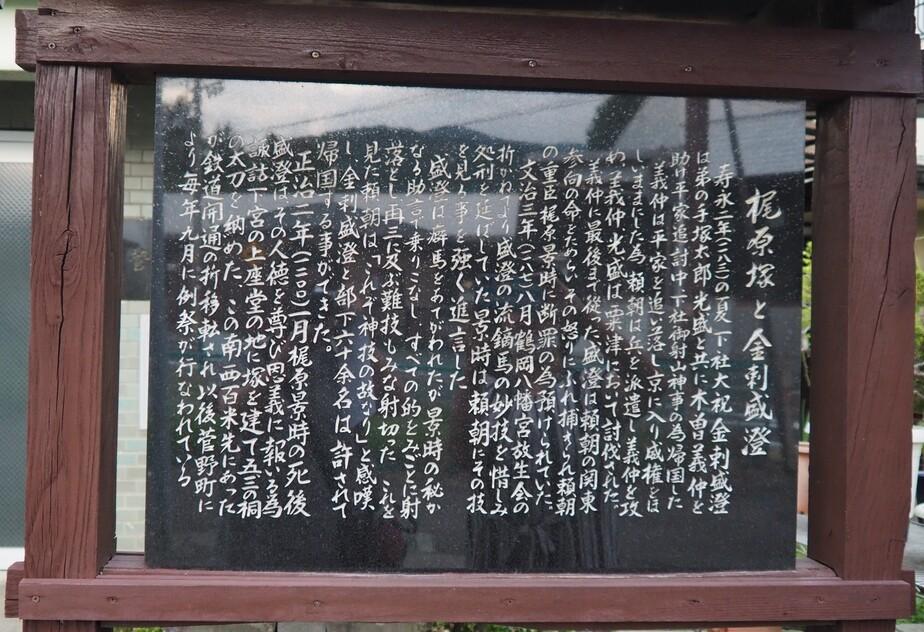 梶原塚と金刺盛澄
寿永二年(一一八三)の夏、下社大祝金刺盛澄
は弟の手塚太郎光盛と共に木曽義仲を
助け平家追討中、下社御射山神事の為帰国した
義仲は平家を追い落し京に入り威権をほ
しいままにした為、頼朝は兵を派遣し義仲を攻
め、義仲、光盛は粟津において討伐された。
義仲に最後まで従った盛澄は頼朝の関東
参向の命をためらい、その怒りにふれ捕えられ頼朝
の重臣梶原景時に断罪の為預けられていた。
文治三年(一一八七)八月鶴岡八幡宮放生会の
折かねてより盛澄の流鏑馬の妙技を惜しみ
処刑を延ばしていた景時は頼朝にその技
を見る事を強く進言した
盛澄は癖馬をあてがわれたが景時の秘か
なる助言で乗りこなし、すべての的をみごとに射
落とし再三に及ぶ難技もみな射切った これを
見た頼朝は「これぞ神技の故なり」と感嘆
し、金刺盛澄と部下六十余名は許されて
帰国する事ができた。
正治二年(一二〇〇)一月梶原景時の死後
盛澄はその人徳を尊び恩義に報いる為
諏訪下宮の上座堂の地に塚を建て五三の桐
の太刀を納めた この南西百米先にあった
が鉄道開通の折移転され以後菅野町に
より毎年九月に例祭が行なわれている